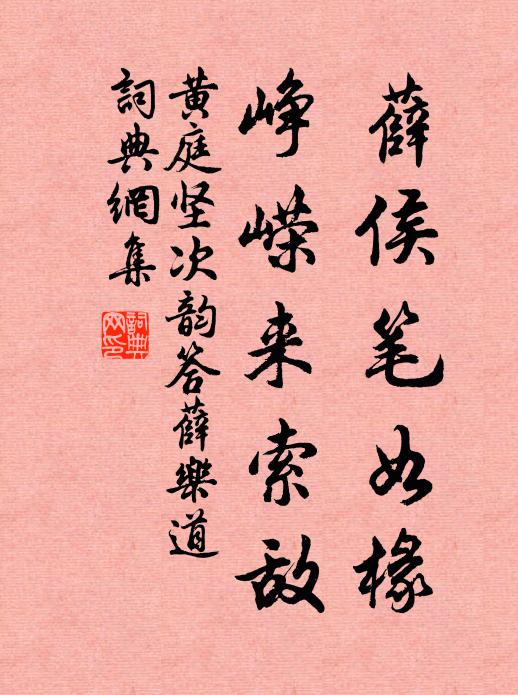 薛侯笔如椽
峥嵘来索敌
黄庭坚次韵答薛樂道
詞典網集
詞典网印